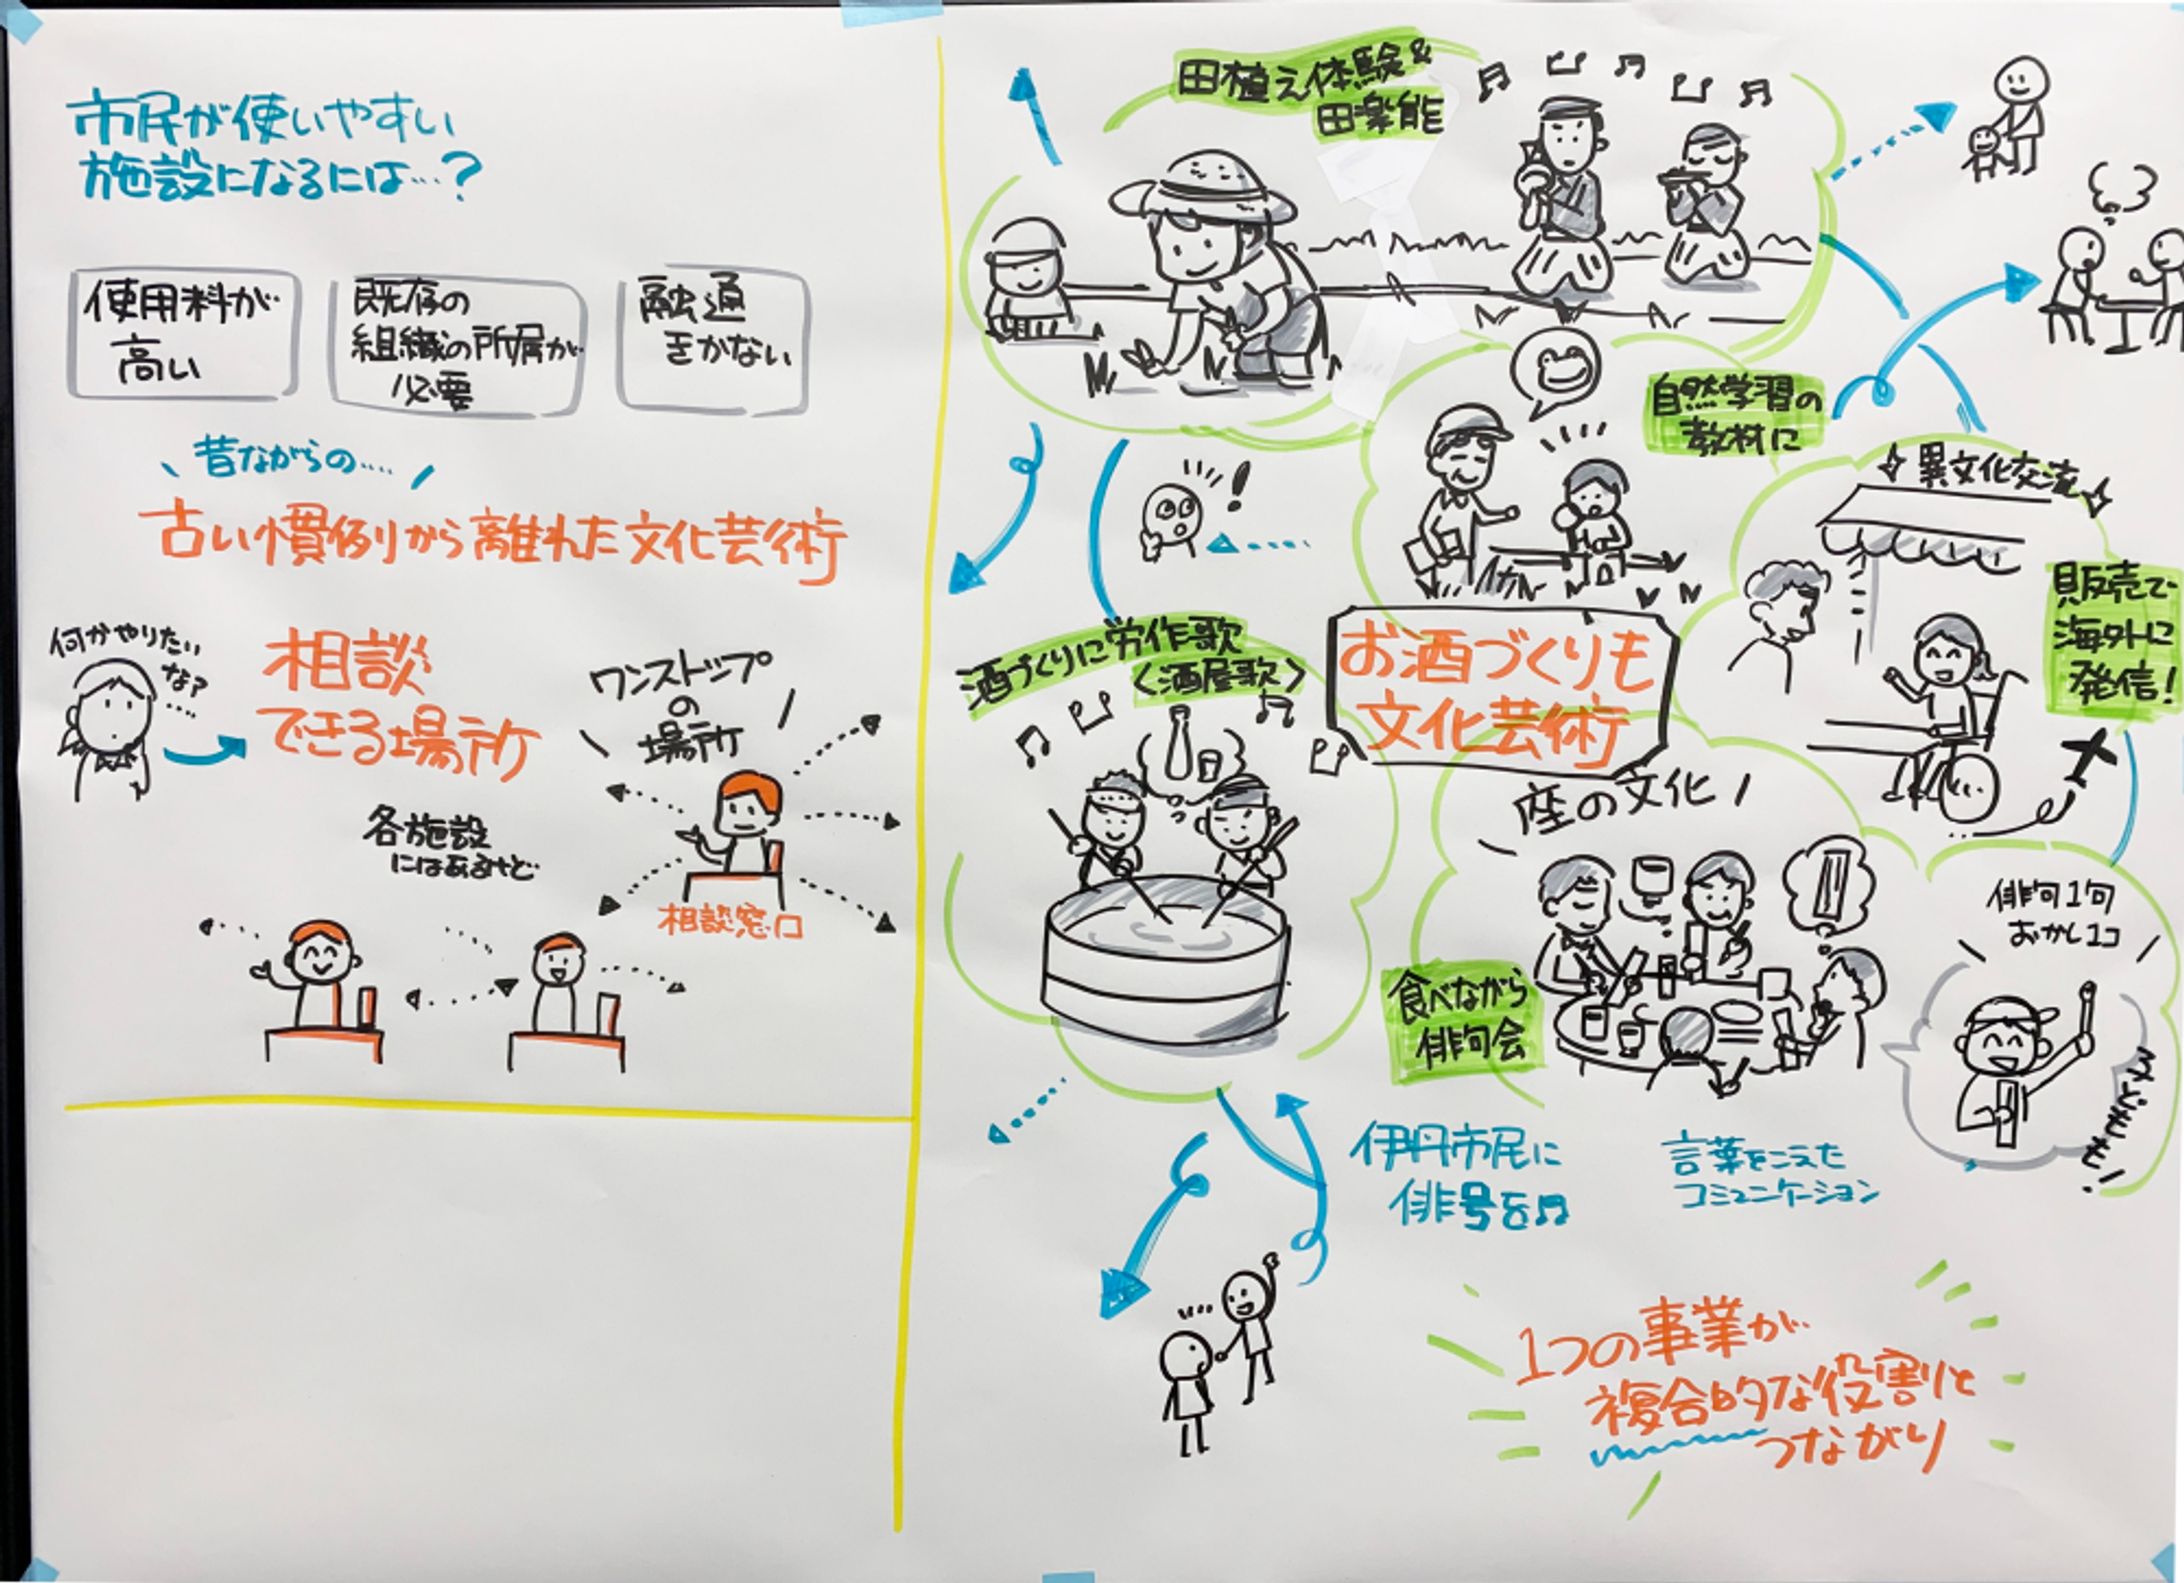 市民が使いやすい
施設になるには…?
使用料が
高い
既存の
組織の所属が
必要
融通
きかない
昔ながらの….
古い慣例から離れた文化芸術
何かやりたい
な?
相談
できる場所
ワンストップ
の
場所
各施設
にはあるけど
相談窓口
田植え体験&
田楽能
自然学習の
教材に
異文化交流
販売で
海外に
発信!
酒づくりに労作歌
〈酒屋歌〉
お酒づくりも
文化芸術
座の文化
食べながら
俳句会
俳句1句
おかし1コ
子どもも!
伊丹市民に
俳号を♫
言葉をこえた
コミュニケーション
1つの事業が
複合的な役割と
つながり